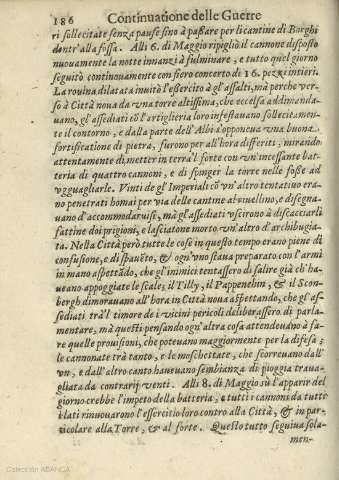 186 Continuatione delle Guerre
ri sollecitate senza pause sino à passare per li cantine di Borghi
dentr'alla fossa. Alli 6. di Maggio ripigliò il cannone disposto
nuouamente la notte innanzi à fulminare, e tutto quel giorno
seguitò continuamente con fiero concerto di 16. pezzi intieri.
La rouina dilatata inuitò l'essercito à gl'assalti, mà perche ver-
so à Città noua da vna torre altissima, che eccelsa addimanda-
uano, gl'assediati cõ l'artiglieria loro infestauano sollecitamen-
te il contorno, e dalla parte dell'Albi s'opponeua vna buona
fortificatione di pietra, furono per all'hora differiti, mirando
attentamente di metter in terra'l forte con vn'incessante bat-
teria di quattro cannoni, e di spinger la torre nelle fosse ad
vgguagliarle. Vinti de gl'Imperiali cõ vn'altro tentatiuo era-
no penetrati homai per via delle cantine al riuellino, e disegna-
uano d'accommodaruisi, mà gl'assediati vscirono à discacciarli
fattine doi prigioni, e lasciatone morto vn'altro d'archibugia-
ta. Nella Città però tutte le cose in questo tempo erano piene di
confusione, e di spauẽto, & ogn'vno staua preparato con l'armi
in mano aspettãdo, che gl'inimici tentassero di salire già ch'ha-
ueano appoggiate le scale; il Tilly, il Pappenehim, & il Scon-
bergh dimorauano all'hora in Città noua aspettando, che gl'as-
sediati trà'l timore de i vicini pericoli deliberassero di parla-
mentare, mà questi pensando ogn'altra cosa attendeuano à fa-
re quelle prouisioni, che poteuano maggiormente per la difesa;
le cannonate trà tanto, e le moschettate, che scorreuano dall'
vn, e dall'altro canto haueuano sembianza di pioggia traua-
gliata da contrarij venti. Alli 8. di Maggio sù l'apparir del
giorno crebbe l'impeto della batteria, e tutti i cannoni da tutti
i lati rinuouarono l'essercitio loro contro alla Città, & in par-
ticolare alla Torre, & al forte. Questo tutto seguiua sola-
men-
Colección ABANCA